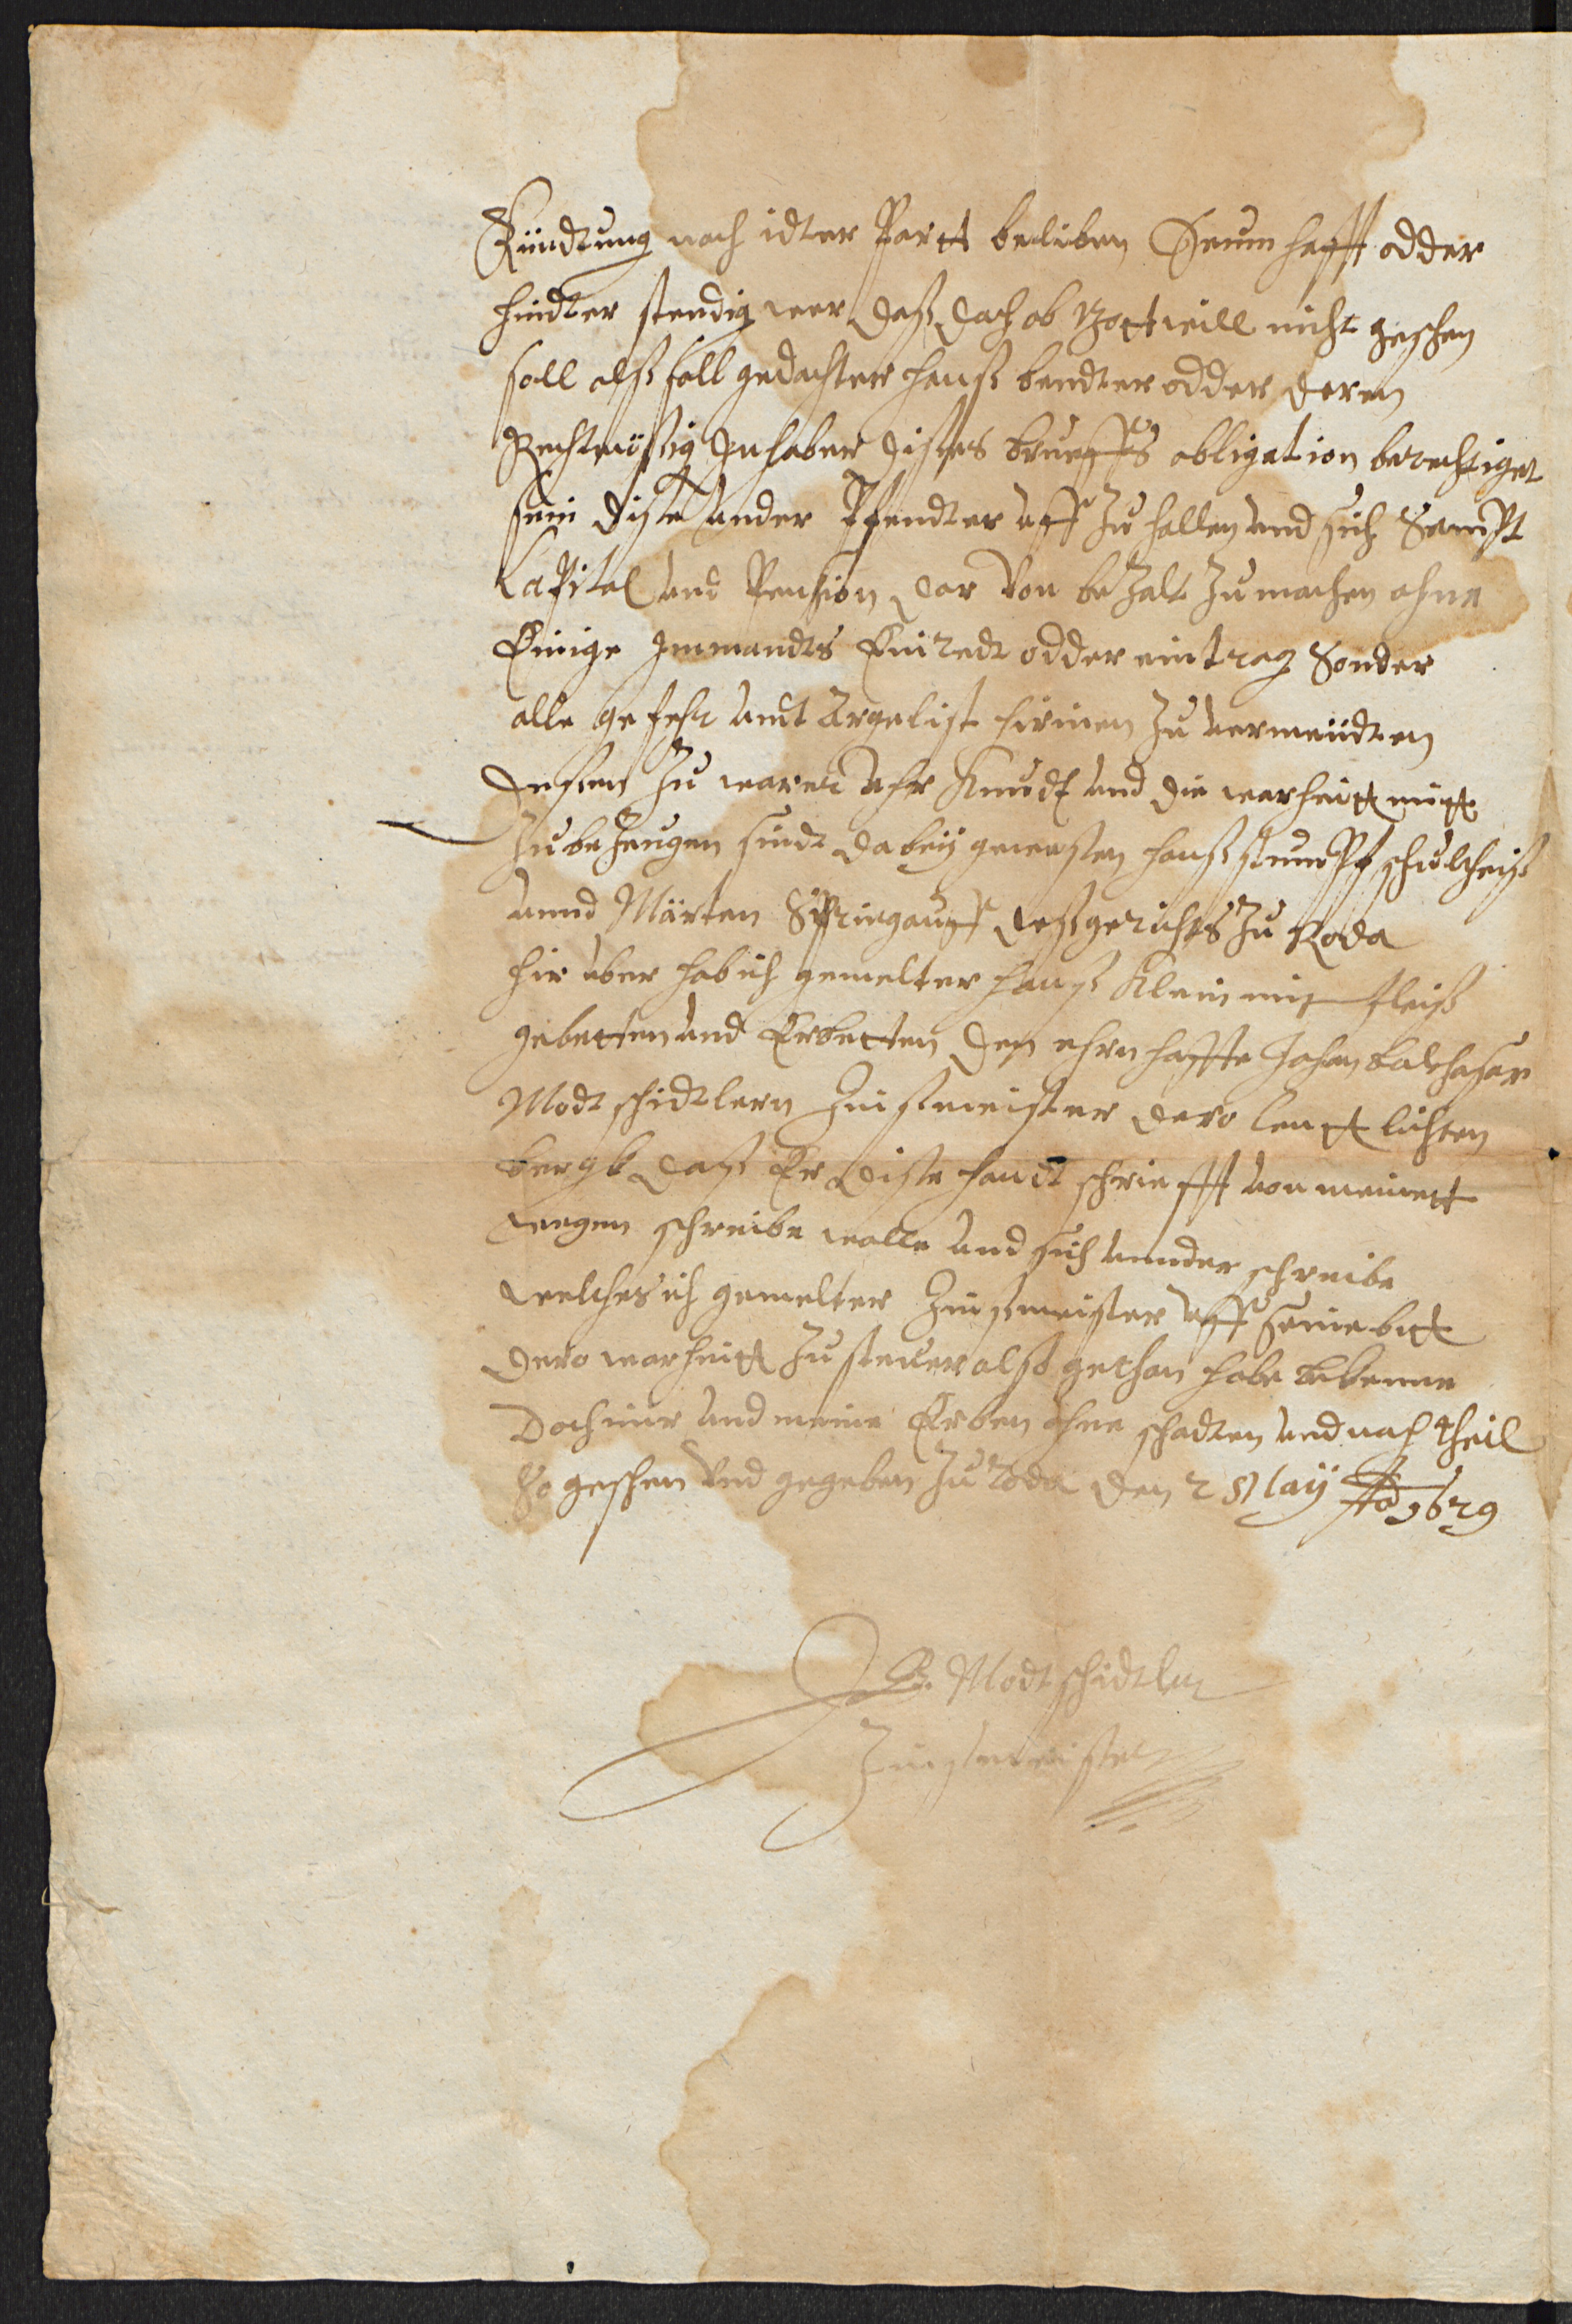 Kündtung nach idter Partt beliben Seumhafft odder
hindter stendig wer daß doch ob Gott will nicht geschen
soll alß soll gedachter Hanß bendter odder deren
Rechtmäßig Inhaber dißes brueffs obligation berechtiget
sein diße under Pfendter uff zu hallen und sich Sampt
Capital und Pension dar von bezalt zu machen ohne
Einige Immandts Einredt odder eintrag Sonder
alle gefehr undt Argelist hirinen zu vermeidten
deßen zu warer uhr Kundt und die warheitt mitt
zu bezeugen sindt dabeÿ geweßen Hanß stumpf schultheiß
unnd Märten Springauff deß gerichts zu Roda
hir uber hab ich gemelter Hanß Klein mit fleiß
gebetten und Erbetten den ehrnhaffte Johan balthasar
Modtschidtlern Zinßmeister dero leutt lichten
bergk daß Er diße handt schriefft von meinett
wegen schreibe wolle und sich unnder schreibe
welches ich gemelter Zinßmeister uff seine bitt
dero warheitt zu steuer alß gethan habe bekenne
Doch mir und meine Erben ohne schadten und nach theil
So geschen und gegeben zu Roda den 2 May Ao 1629
JB. Modtschidtler
Zinßmeister